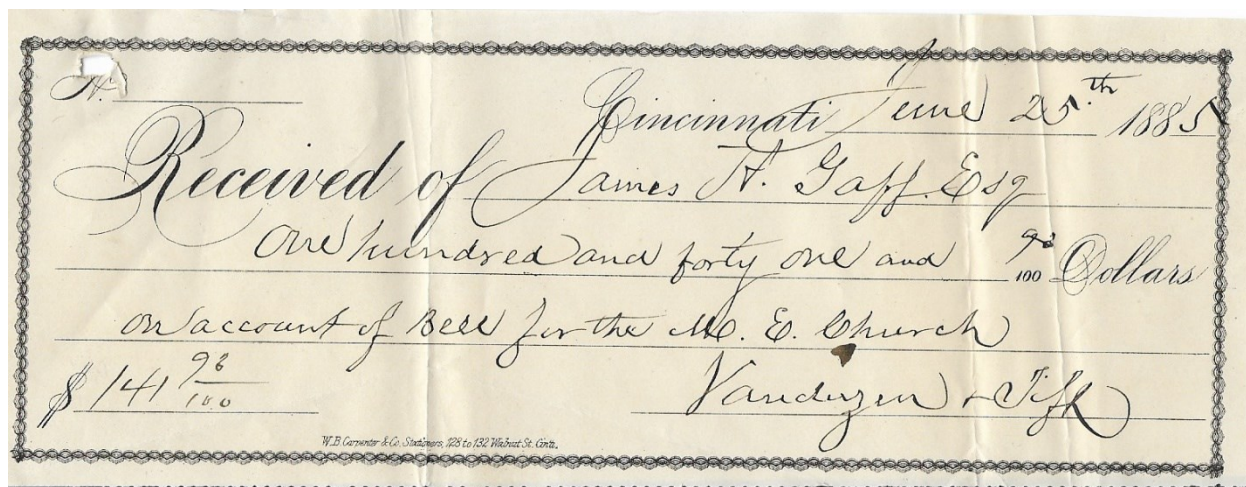 No.
Cincinnati June 25th 1885
Received of James H. Gaff. Esq
One hundred and forty one and 98/100 Dollars
on account of Bell for the M. E. Church
$ 141 98/100 Vanduzen & Tift
W.B. Carpenter & Co. Stationers, 128 to 132 Walnut St. Cinti.